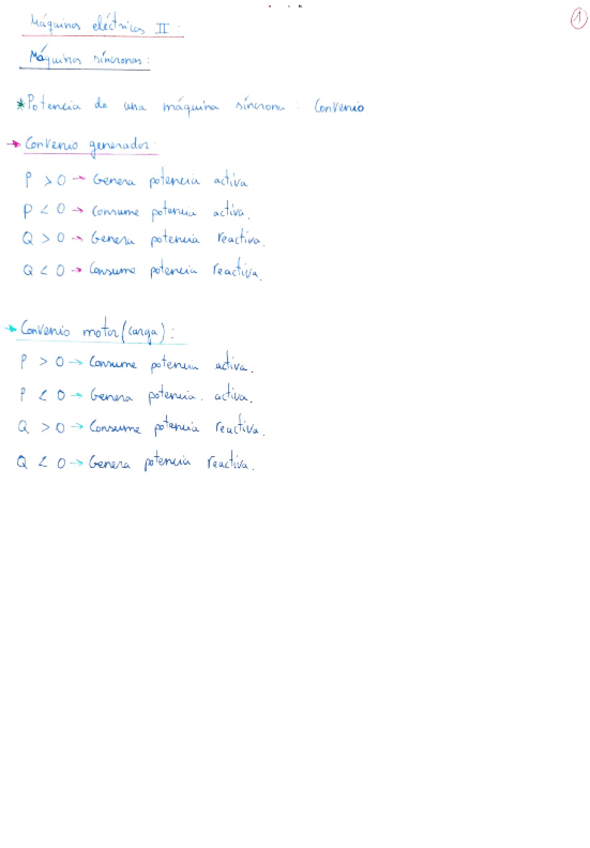 Máquinas eléctricas II:
1
Máquinas síncronas:
*Potencia de una máquina síncrona: Convenio
→ Convenio generador:
P > 0 → Genera potencia activa.
P < 0 → Consume potencia activa.
Q > 0 → Genera potencia reactiva.
Q < 0 → Consume potencia reactiva.
→ Convenio motor (carga):
P > 0 → Consume potencia activa.
P < 0 → Genera potencia. activa.
Q > 0 → Consume potencia reactiva.
Q < 0 → Genera potencia reactiva.